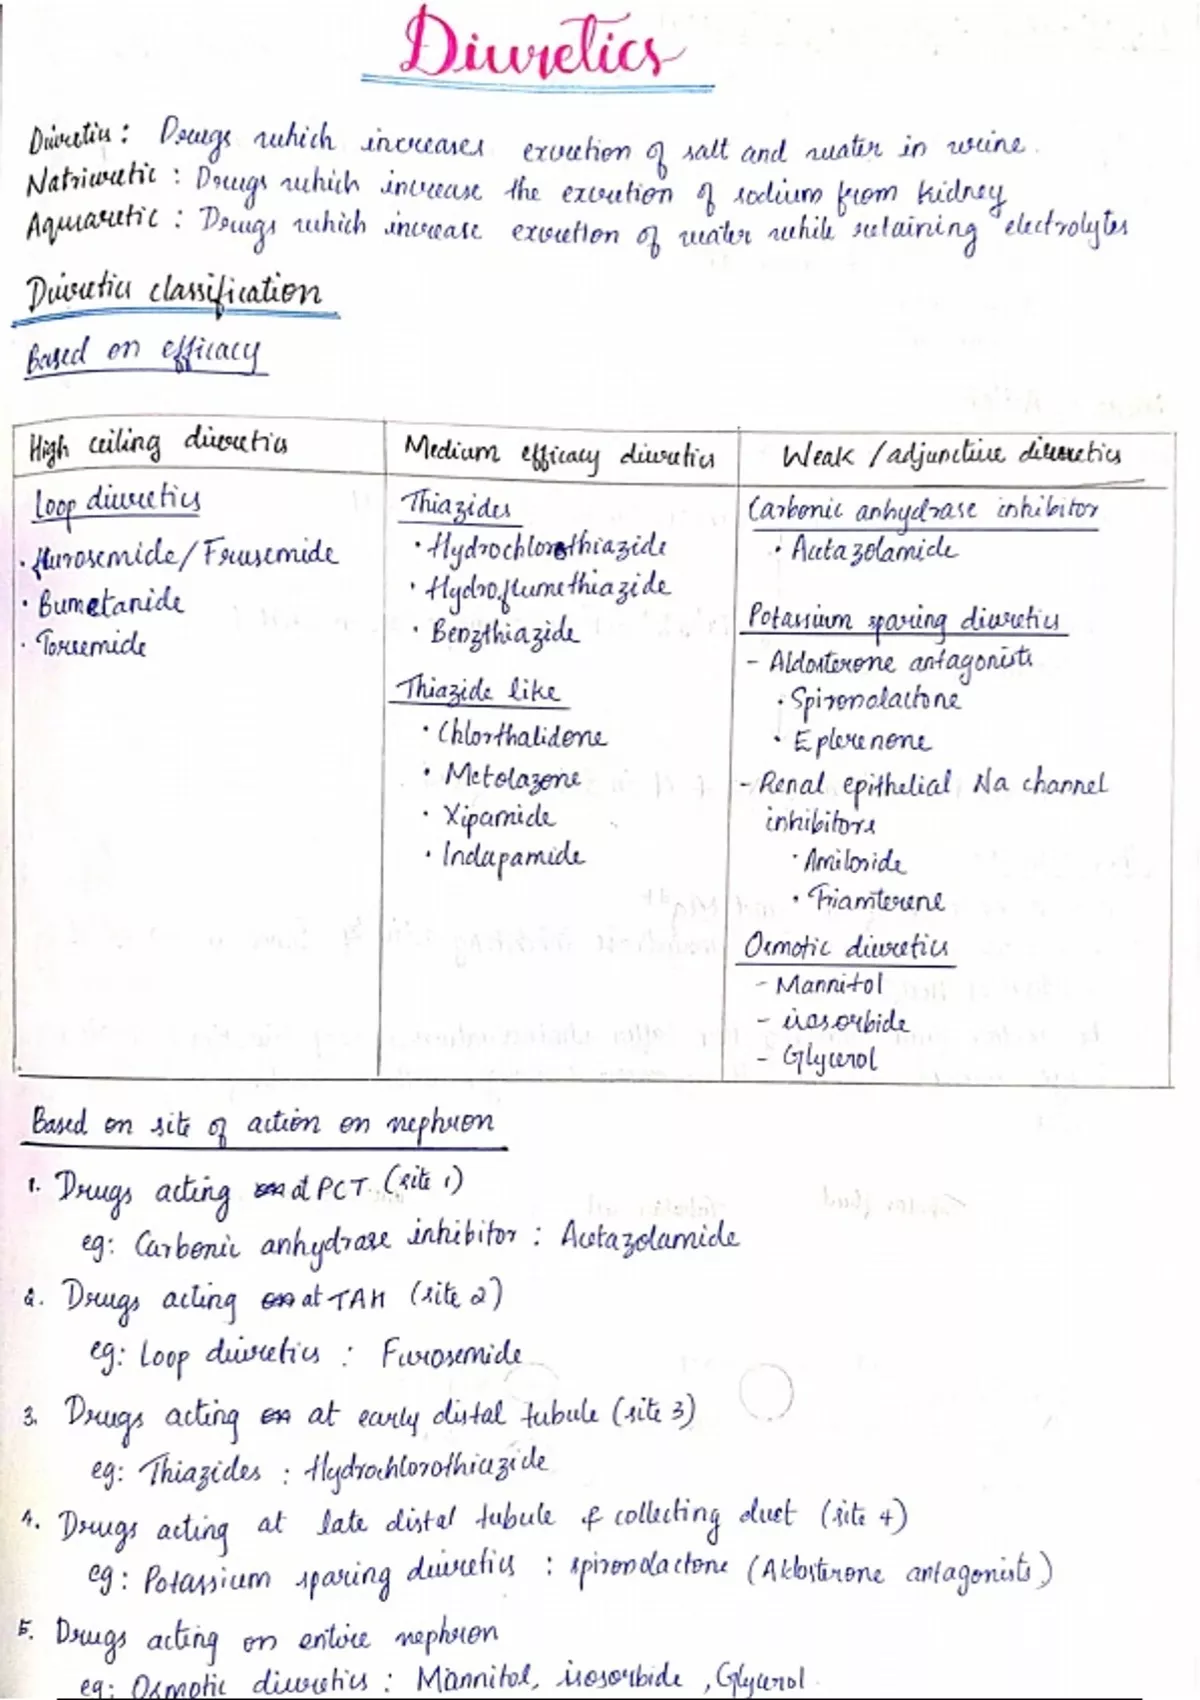 Diuretics
Diuretics : Drugs which increases excretion of salt and water in urine.
Natriuretic : Drugs which increase the excretion of sodium from kidney
Aquaretic : Drugs which increase excretion of water while retaining electrolytes
Diuretics classification
Based on efficacy
High ceiling diuretics
Loop diuretics
· furosemide/Frusemide
· Bumetanide
· Torsemide
Medium efficacy diuretics
Thiazides
· Hydrochlorothiazide
· Hydroflumethiazide
· Benzthiazide
Thiazide like
· Chlorthalidone
· Metolazone
· Xipamide
· Indapamide
Weak /adjunctive diuretics
Carbonic anhydrase inhibitor
· Acetazolamide
Potassium sparing diuretics
- Aldosterone antagonists
· Spironolactone
· Eplerenone
- Renal epithelial Na channel
inhibitors
· Amiloride
· Triamterene
Osmotic diuretics
- Mannitol
- isosorbide
- Glycerol
Based on site of action on nephron
1. Drugs acting at PCT (site 1)
eg: Carbonic anhydrase inhibitor : Acetazolamide
2. Drugs acting at TAH (site 2)
eg: Loop diuretics : Furosemide
3. Drugs acting at early distal tubule (site 3)
eg: Thiazides : Hydrochlorothiazide
4. Drugs acting at late distal tubule & collecting duct (site 4)
eg: Potassium sparing diuretics : spironolactone (Aldosterone antagonists)
5. Drugs acting on entire nephron
eg: Osmotic diuretics : Mannitol, isosorbide, Glycerol.